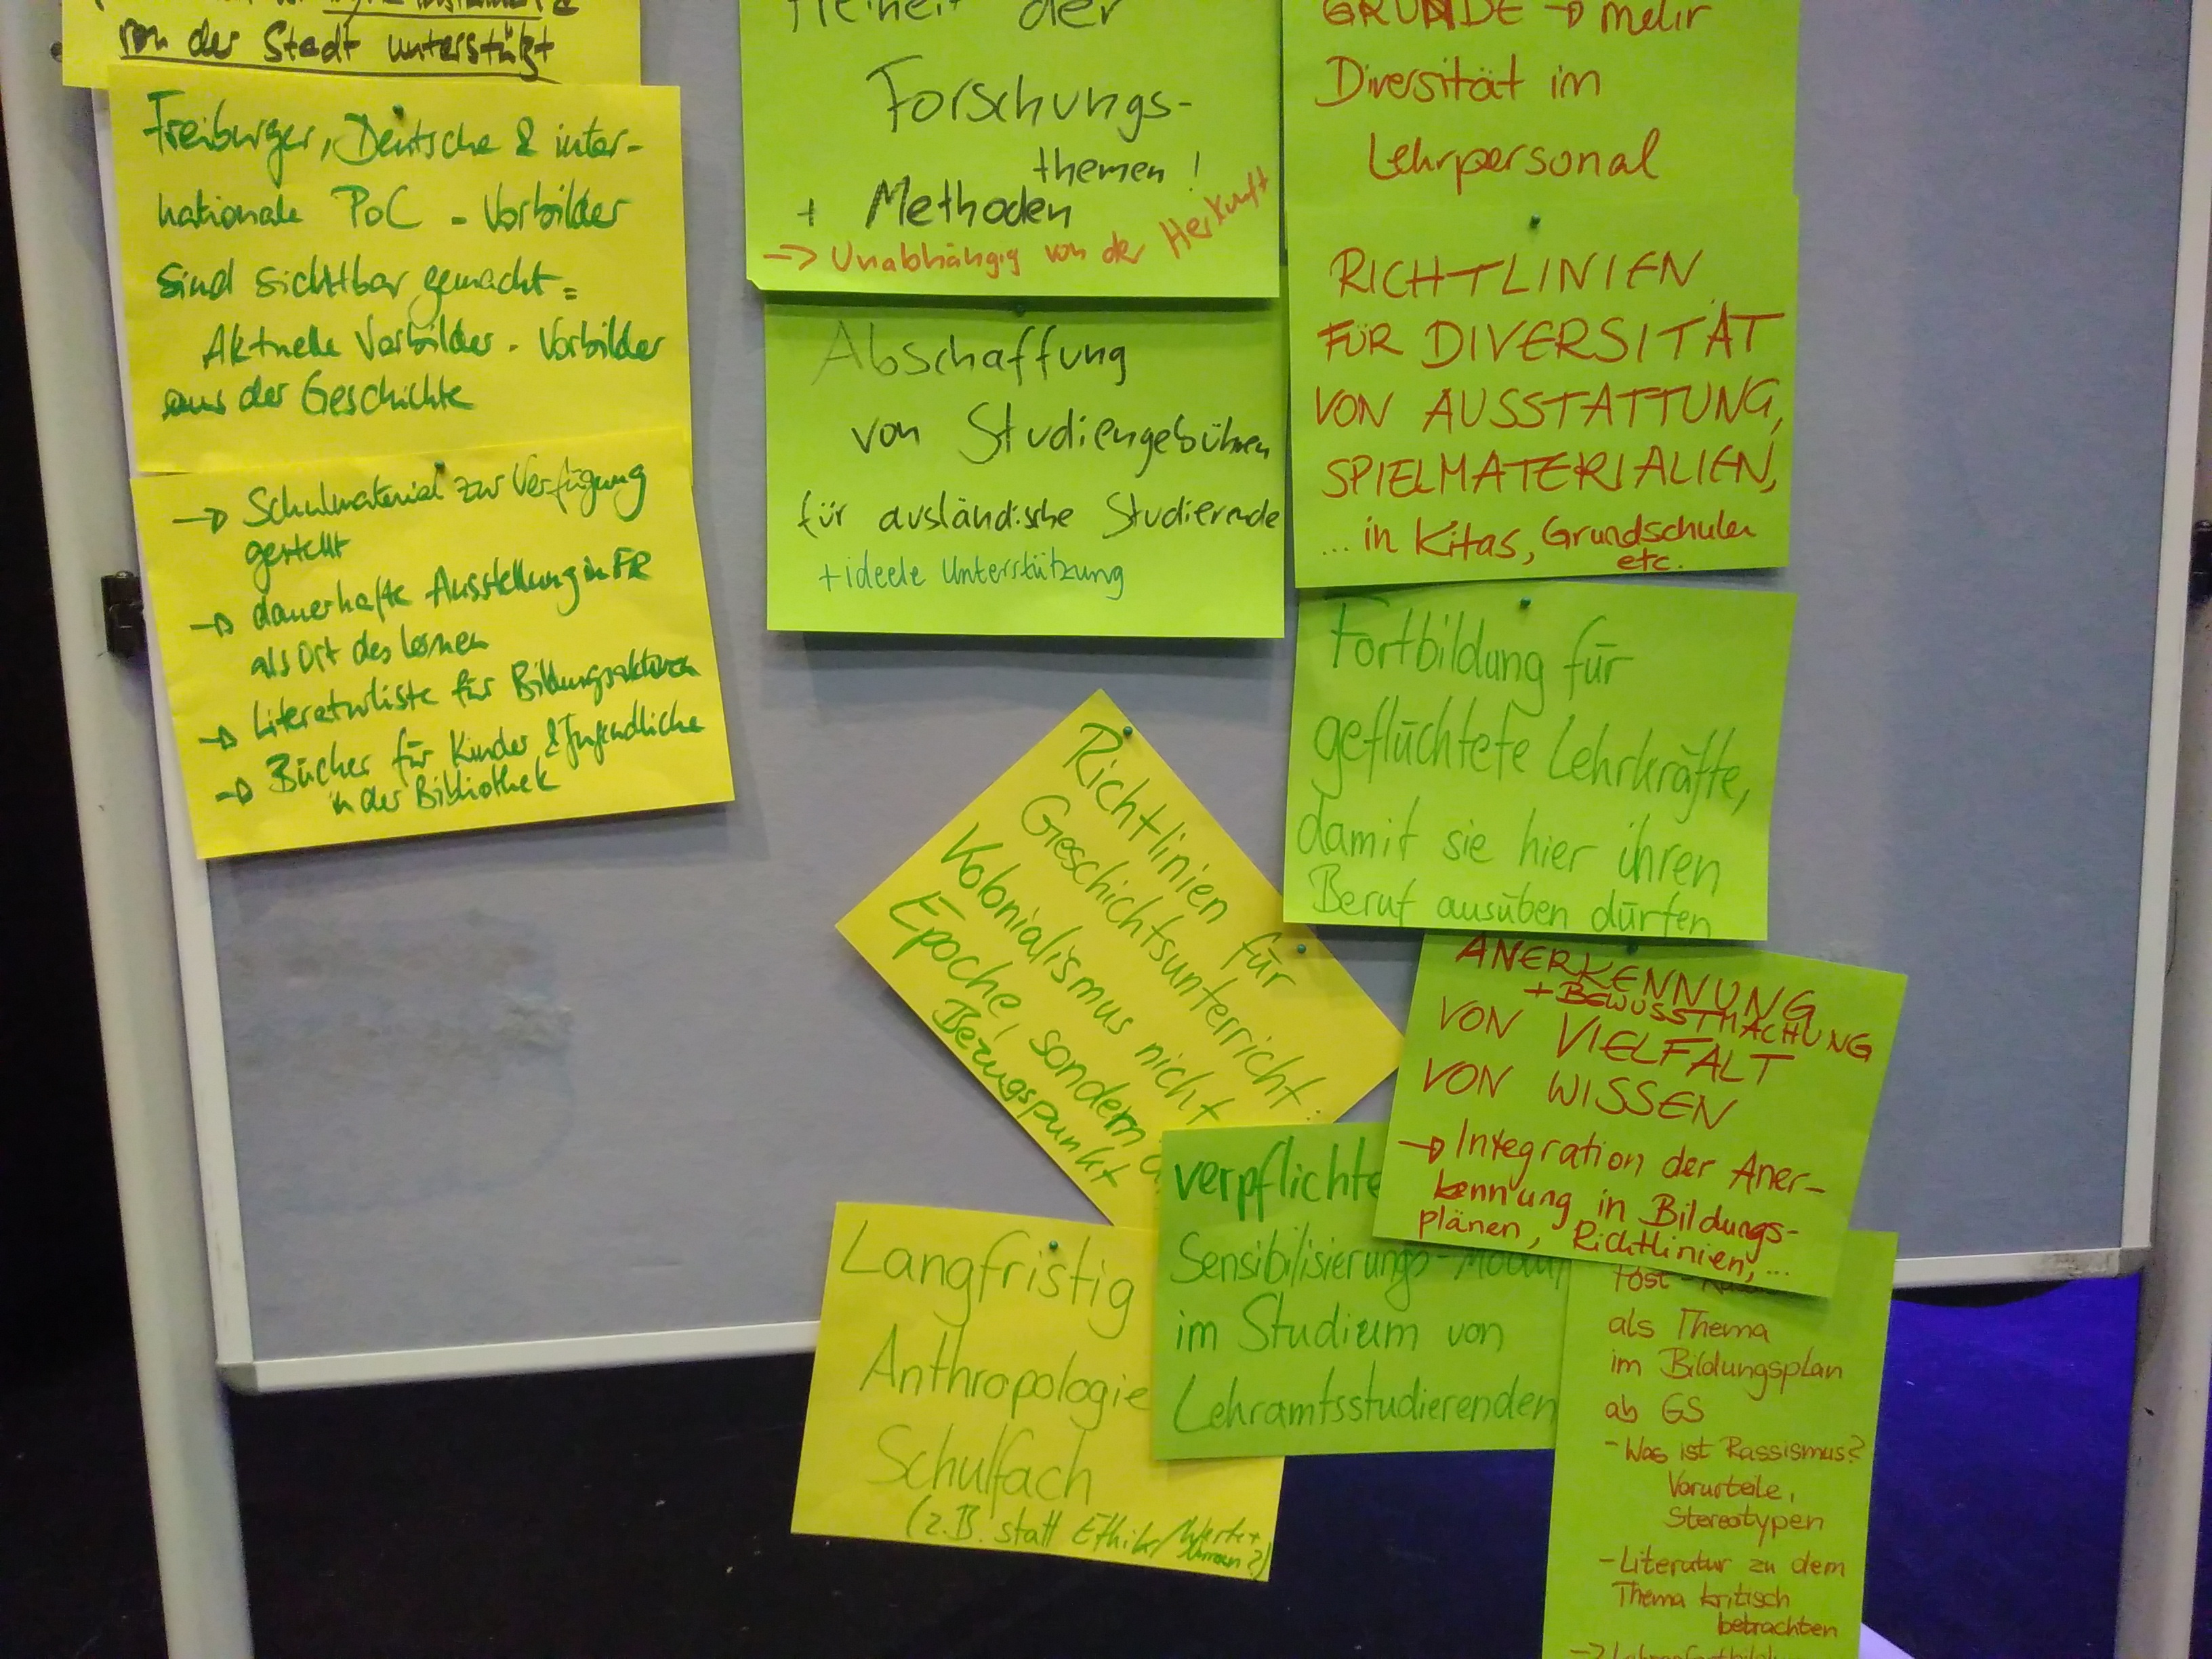 von der Stadt unterstützt
Freiburger, Deutsche & inter-
nationale PoC - Vorbilder
sind sichtbar gemacht =
Aktuelle Vorbilder - Vorbilder
aus der Geschichte
→ Schulmaterial zur Verfügung
gestellt
→ dauerhafte Ausstellung in FR
als Ort des Lernen
→ Literaturliste für Bildungsakteure
→ Bücher für Kinder & Jugendliche
in der Bibliothek
der
Forschungs-
themen!
+ Methoden
→ Unabhängig von der Herkunft
Abschaffung
von Studiengebühren
für ausländische Studierende
+ ideele Unterstützung
GRÜNDE → mehr
Diversität im
Lehrpersonal
RICHTLINIEN
FÜR DIVERSITÄT
VON AUSSTATTUNG,
SPIELMATERIALIEN,
... in Kitas, Grundschulen
etc.
Fortbildung für
geflüchtete Lehrkräfte,
damit sie hier ihren
Beruf ausüben dürfen
Richtlinien für
Geschichtsunterricht:
Kolonialismus nicht
Epoche, sondern
Bezugspunkt
ANERKENNUNG
+ BEWUSSTMACHUNG
VON VIELFALT
VON WISSEN
→ Integration der Aner-
kennung in Bildungs-
plänen, Richtlinien, ...
verpflichte
Sensibilisierungs-Modul
im Studium von
Lehramtsstudierenden
Langfristig
Anthropologie
Schulfach
(z.B. statt Ethik/
Post-
als Thema
im Bildungsplan
ab GS
- Was ist Rassismus?
Vorurteile,
Stereotypen
- Literatur zu dem
Thema kritisch
betrachten